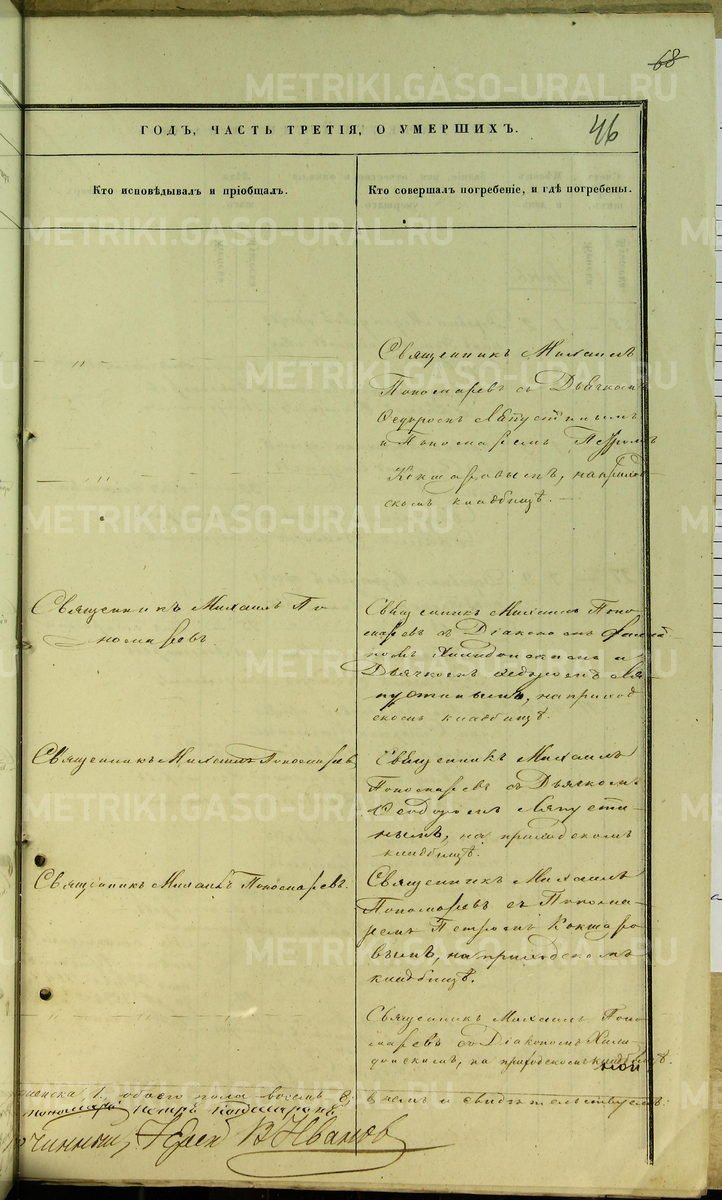 68
ГОДЪ, ЧАСТЬ ТРЕТІЯ, О УМЕРШИХЪ.
46
Кто исповѣдывалъ и пріобщалъ.
Кто совершалъ погребеніе, и гдѣ погребены.
Священникъ Михаилъ
Пономаревъ съ Дьячкомъ
Ѳедоромъ Ляпустинымъ
и Пономаремъ Петромъ
Кокшаровымъ, на приход-
скомъ кладбищѣ.
Священникъ Михаилъ По
номаревъ
Священникъ Михаилъ Поно
маревъ съ Діакономъ
Халидонскимъ и
Дьячкомъ Ѳедоромъ Ля
пустинымъ, на приход
скомъ кладбищѣ.
Священникъ Михаилъ Пономаревъ
Священникъ Михаилъ
Пономаревъ съ Дьячкомъ
Ѳеодоромъ Ляпусти
нымъ, на приходскомъ
кладбищѣ.
Священникъ Михаилъ Пономаревъ.
Священникъ Михаилъ
Пономаревъ съ Понома
ремъ Петромъ Кокшаро
вымъ, на приходскомъ
кладбищѣ.
Священникъ Михаилъ Поно
маревъ съ Діакономъ Хали
донскимъ, на приходскомъ кладбищѣ.
женска 1. обоего пола восемь 8.
въ чемъ и свидѣтельствуемъ:
пономарь Петръ Кокшаровъ
Иванов
METRIKI.GASO-URAL.RU